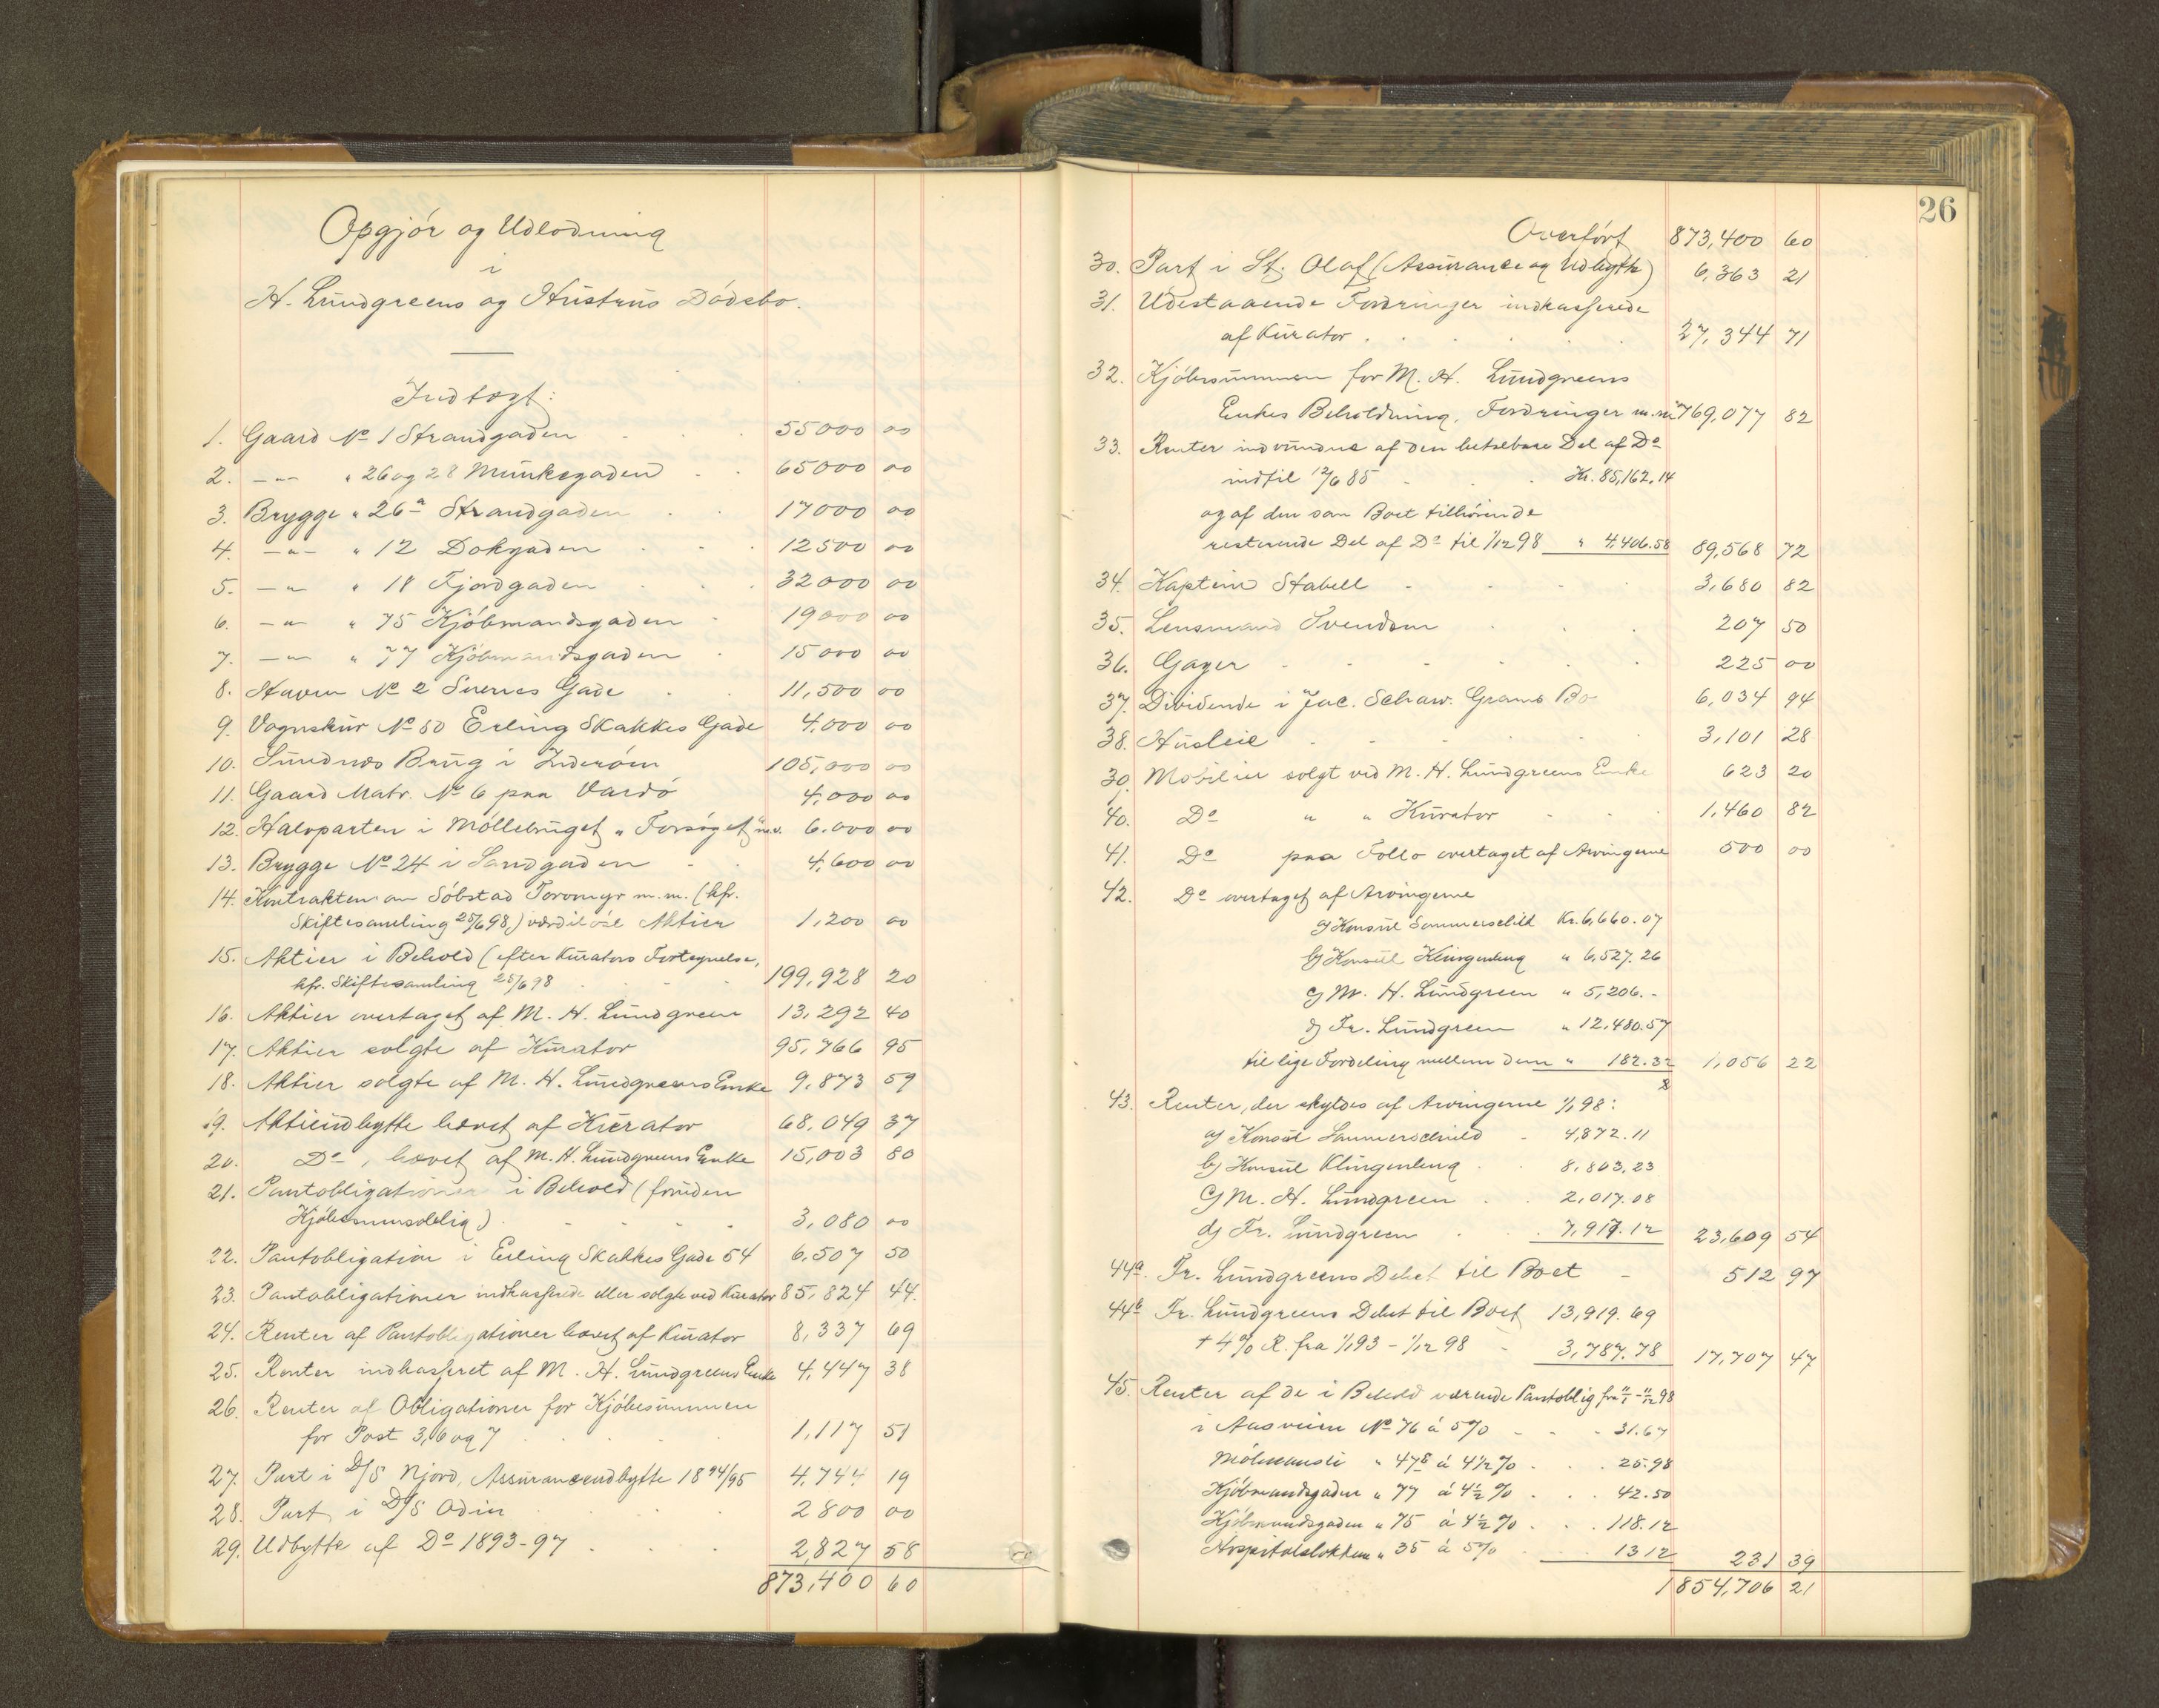 Opgjör og Udlodning
i
H. Lundgreens og Hustrus Dödsbo.
Indtægt:
1. Gaard No 1 Strandgaden 55000 00
2. —"— " 26 og 28 Munkegaden 65000 00
3. Brygge " 26a Strandgaden 17000 00
4. —"— " 12 Dokgaden 12500 00
5. —"— " 18 Fjordgaden 32000 00
6. —"— " 75 Kjöbmandsgaden 19000 00
7. —"— " 77 Kjöbmandsgaden 15000 00
8. Haven No 2 Sverres Gade 11,500 00
9. Vognskur No 50 Erling Skakkes Gade 4,000 00
10. Sundnæs Brug i Inderöen 105,000 00
11. Gaard Matr. No 6 paa Vardö 4,000 00
12. Halvparten i Möllebruget "Forsöget" m.v. 6,000 00
13. Brygge No 24 i Sandgaden 4,600 00
14. Kontrakten om Söbstad Torvmyr m.m. (kfr.
Skiftesamling 25/6 98,) værdilöse Aktier 1,200 00
15. Aktier i Behold (efter Kurators Fortegnelse,
kfr. Skiftesamling 25/6 98 199,928 20
16. Aktier overtaget af M. H. Lundgreen 13,292 40
17. Aktier solgte af Kurator 95,766 95
18. Aktier solgte af M. H. Lundgreens Enke 9,873 59
19. Aktieudbytte hævet af Kurator 68,049 37
20. Do, hævet af M. H. Lundgreens Enke 15,003 80
21. Pantobligationer i Behold (foruden
Kjöbesumsoblig) 3,080 00
22. Pantobligation i Erling Skakkes Gade 54 6,507 50
23. Pantobligationer indkasserede eller solgte ved Kurator 85,824 44.
24. Renter af Pantobligationer hævet af Kurator 8,337 69
25. Renter indkasseret af M. H. Lundgreens Enke 4,447 38
26. Renter af Obligationer for Kjöbesummen
for Post 3, 6 og 7 1,117 51
27. Part i D/S Njord, Assuranceudbytte 1894/95 4,744 19
28. Part i D/S Odin 2800 00
29. Udbytte af Do 1893-97 2,827 58
873,400 60
26
Overført 873,400 60
30. Part i St. Olaf (Assurance og Udbytte) 6,363 21
31. Udestaaende Fordringer indkasserede
af Kurator 27,344 71
32. Kjöbesummen for M. H. Lundgreens
Enkes Beholdning, Fordringer m.m. 769,077 82
33. Renter indvundne af den betalbare Del af Do
indtil 12/6 85 Kr. 85,162.14
og af den som Boet tilhörende
resterende Del af Do til 1/12 98 " 4,406.58 89,568 72
34. Kaptein Stabell 3,680 82
35. Lensmand Svendsen 207 50
36. Gager 225 00
37. Dividende i Jac. Schaw. Grams Bo 6,034 94
38. Husleie 3,101 28
39. Mobilier solgt ved M. H. Lundgreens Enke 623 20
40. Do " " Kurator 1,460 82
41. Do paa Follo overtaget af Arvingerne 500 00
42. Do overtaget af Arvingerne
a) Konsul Sommerschild Kr. 6,660.07
b) Konsul Klingenberg " 6,527.26
c) M. H. Lundgreen " 5,206.-
d) Fr. Lundgreen " 12,480.57
til lige Fordeling mellem dem " 182.32 1,056 22
43. Renter, der skyldes af Arvingerne 1/1 98:
a) Konsul Sommerschild 4,872.11
b) Konsul Klingenberg 8,803.23
c) M. H. Lundgreen 2,017.08
d) Fr. Lundgreen 7,917.12 23,609 54
44a. Fr. Lundgreens Debet til Boet 512 97
44b Fr. Lundgreens Debet til Boet 13,919.69
+ 4% R. fra 1/1 93 - 1/12 98 3,787.78 17,707 47
45. Renter af de i Behold værende Pantoblig fra 11/1 - 11/12 98
i Aasveien No 76 á 5% 31.67
" 47b á 4 1/2% 25.98
Kjöbmandsgaden " 77 á 4 1/2% 42.50
Kjöbmandsgaden " 75 á 4 1/2% 118.12
Hospitalslökken " 35 á 5% 13 12 231 39
1854,706 21